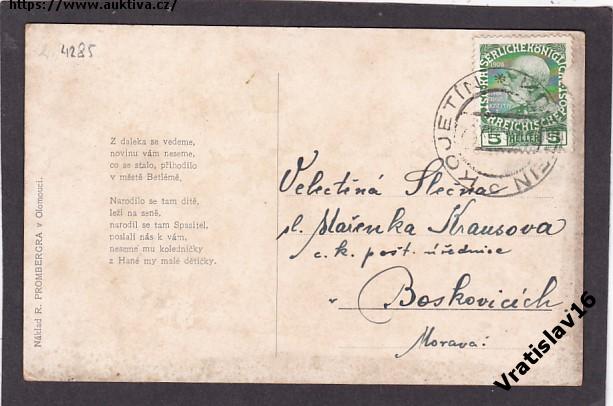 https://www.auktiva.cz/
4285
Z daleka se vedeme,
novinu vám neseme,
co se stalo, přihodilo
v městě Betlémě.
Narodilo se tam dítě,
leží na seně,
narodil se tam Spasitel,
poslali nás k vám,
neseme mu koledničky
z Hané my malé dětičky.
Náklad R. PROMBERGRA v Olomouci.
1908
HELLER
5 5
KOJETÍN * KOJETEIN
Velectěná Slečna
sl. Mařenka Krausova
c. k. pošt. úřednice
v Boskovicích
Morava.
Vratislav16